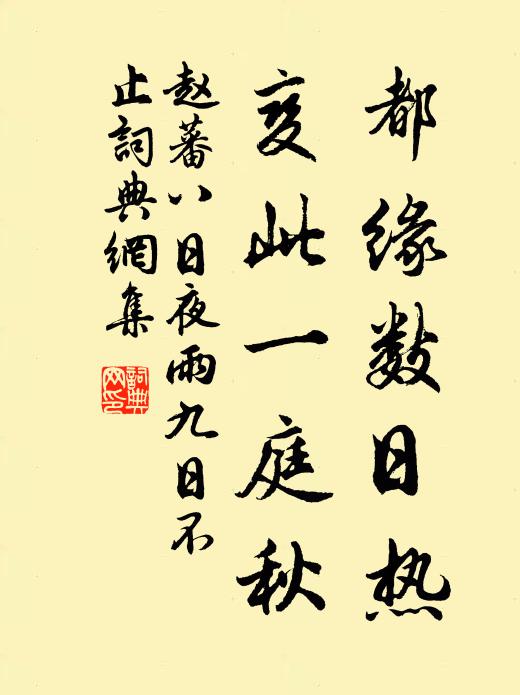 都缘数日热
变此一庭秋
赵蕃八日夜雨九日不
止詞典網集
詞典
网印